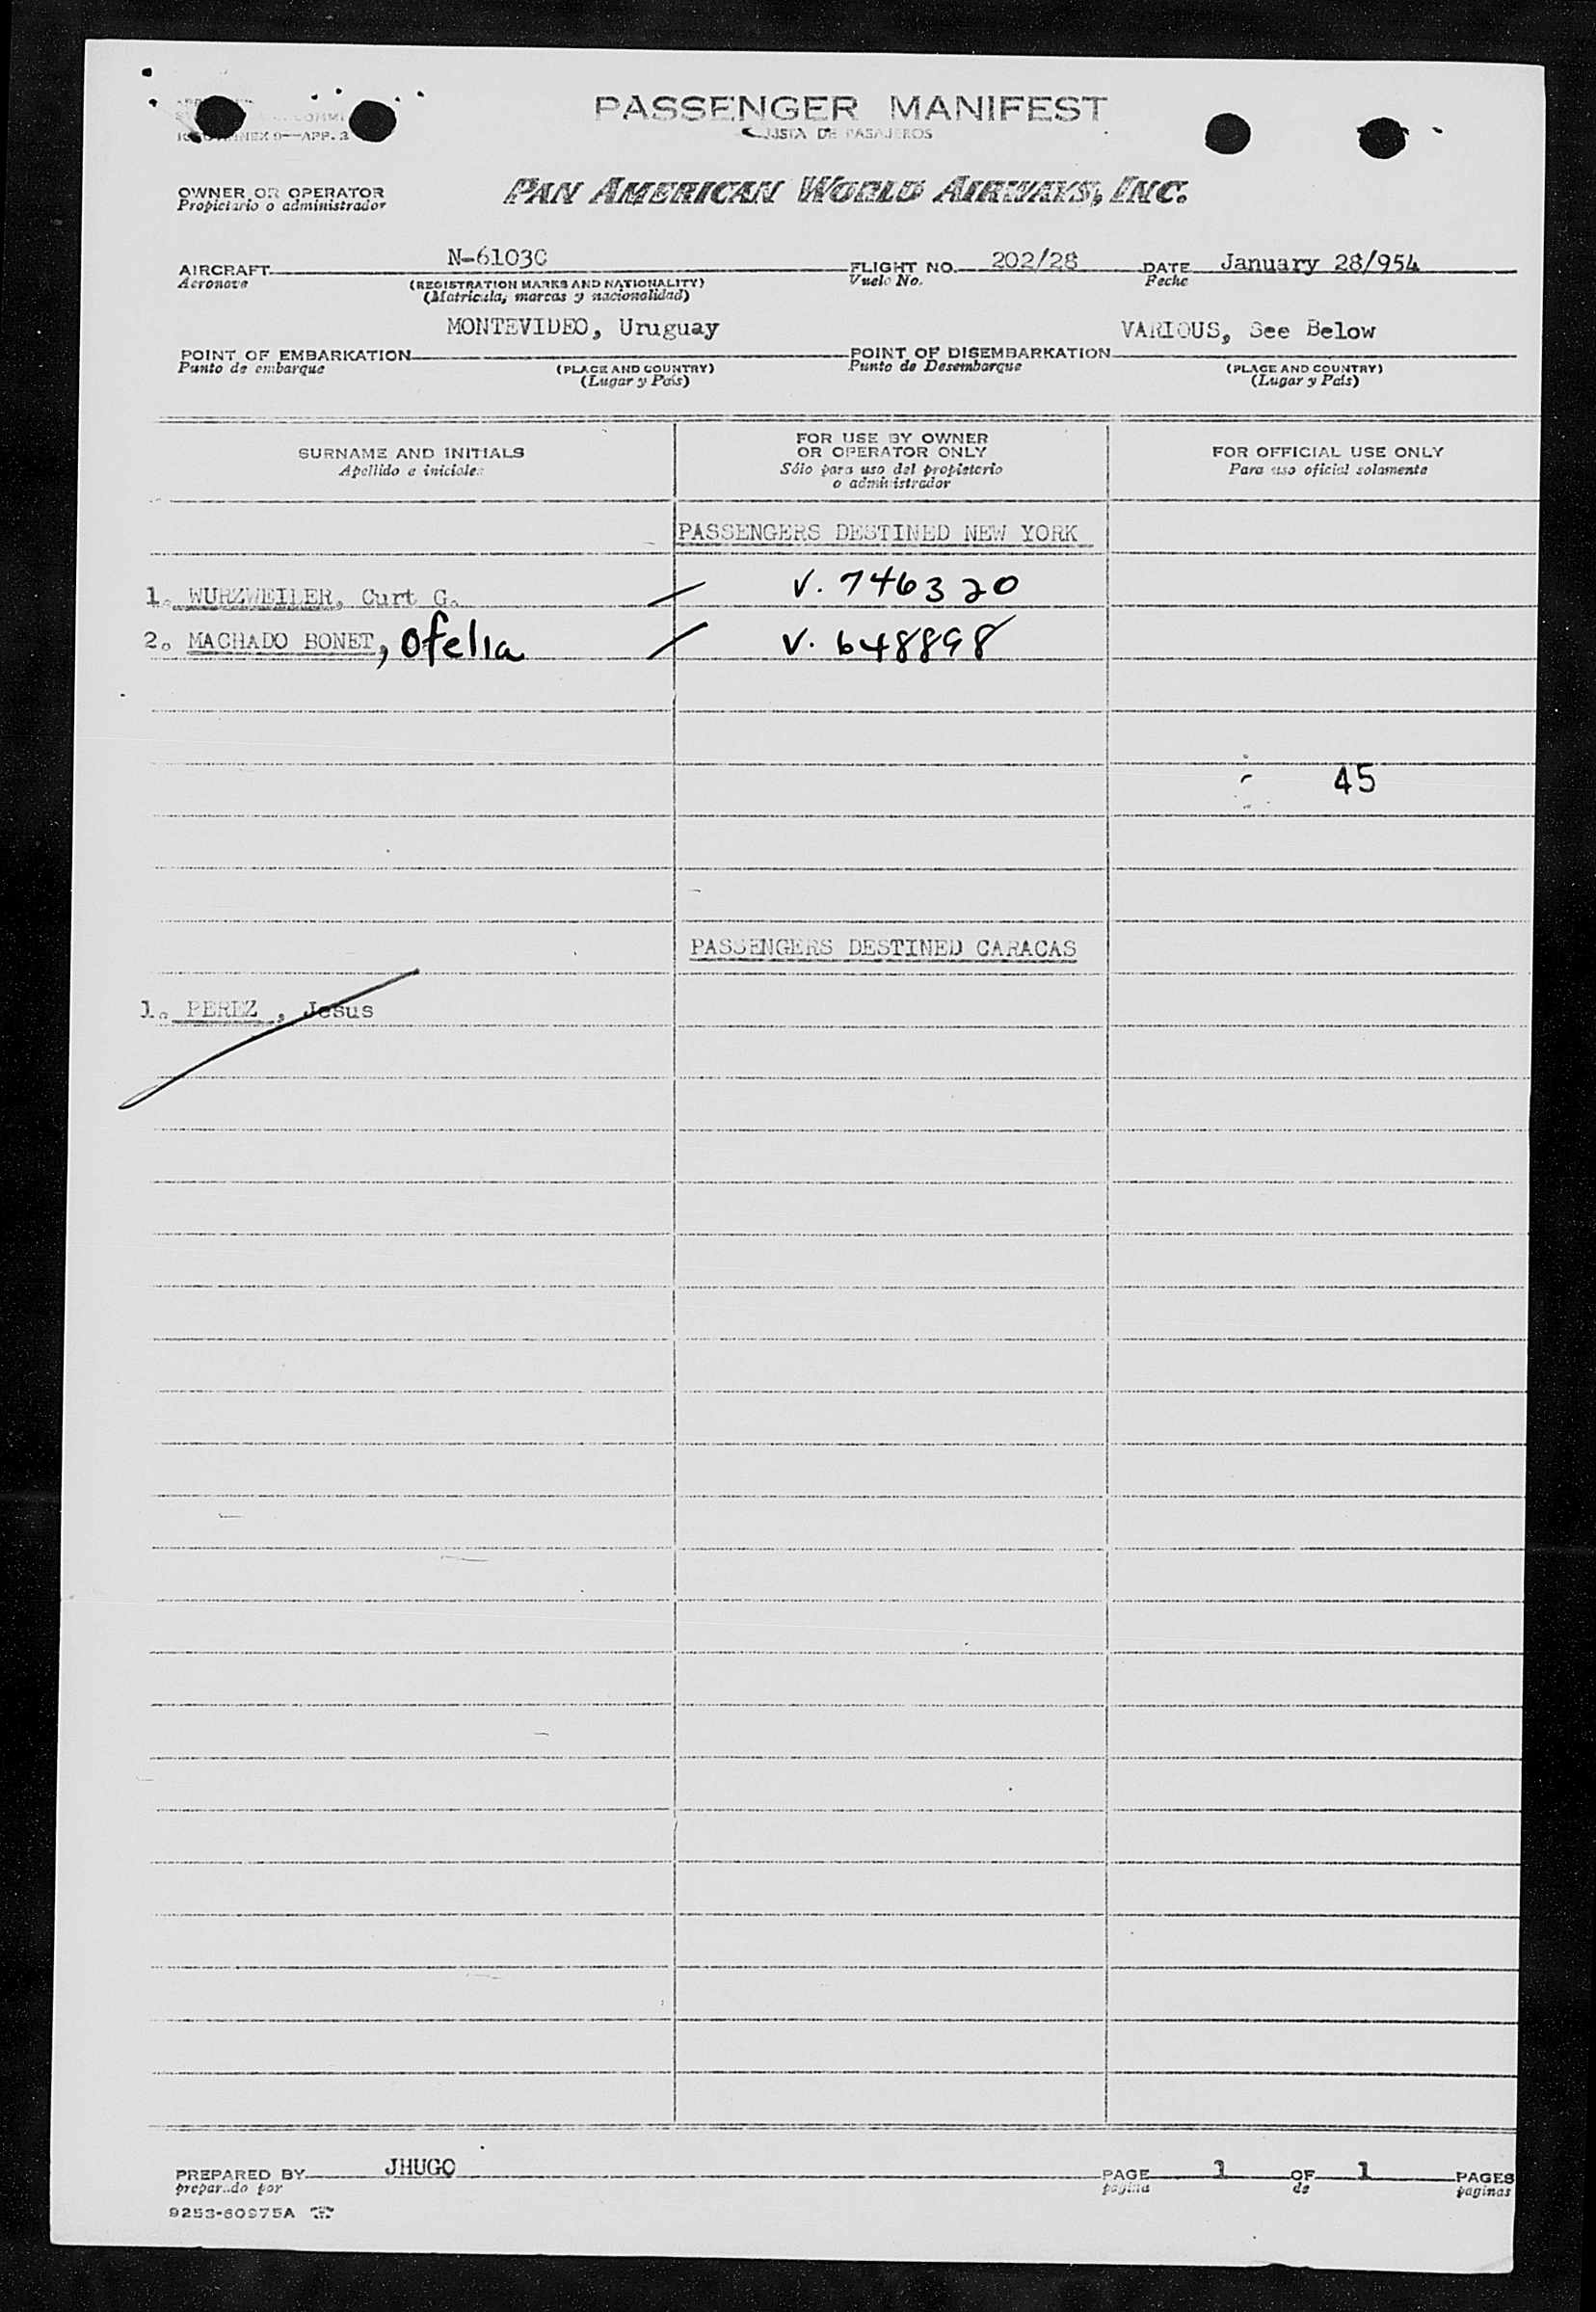 PASSENGER MANIFEST
LISTA DE PASAJEROS
ANNEX 9—APP. 3
OWNER OR OPERATOR
Propietario o administrador
PAN AMERICAN WORLD AIRWAYS, INC.
AIRCRAFT N-6103C FLIGHT NO. 202/28 DATE January 28/954
Aeronave (REGISTRATION MARKS AND NATIONALITY) Vuelo No. Fecha
(Matricula, marcas y nacionalidad)
MONTEVIDEO, Uruguay VARIOUS, See Below
POINT OF EMBARKATION POINT OF DISEMBARKATION
Punto de embarque (PLACE AND COUNTRY) Punto de Desembarque (PLACE AND COUNTRY)
(Lugar y País) (Lugar y País)
SURNAME AND INITIALS
Apellido e iniciales
FOR USE BY OWNER
OR OPERATOR ONLY
Sólo para uso del propietario
o administrador
FOR OFFICIAL USE ONLY
Para uso oficial solamente
PASSENGERS DESTINED NEW YORK
1. WURZWEILER, Curt G. V. 746320
2. MACHADO BONET, Ofelia V. 648898
45
PASSENGERS DESTINED CARACAS
1. PEREZ , Jesus
PREPARED BY JHUGO PAGE 1 OF 1 PAGES
preparado por página de páginas
9253-60975A